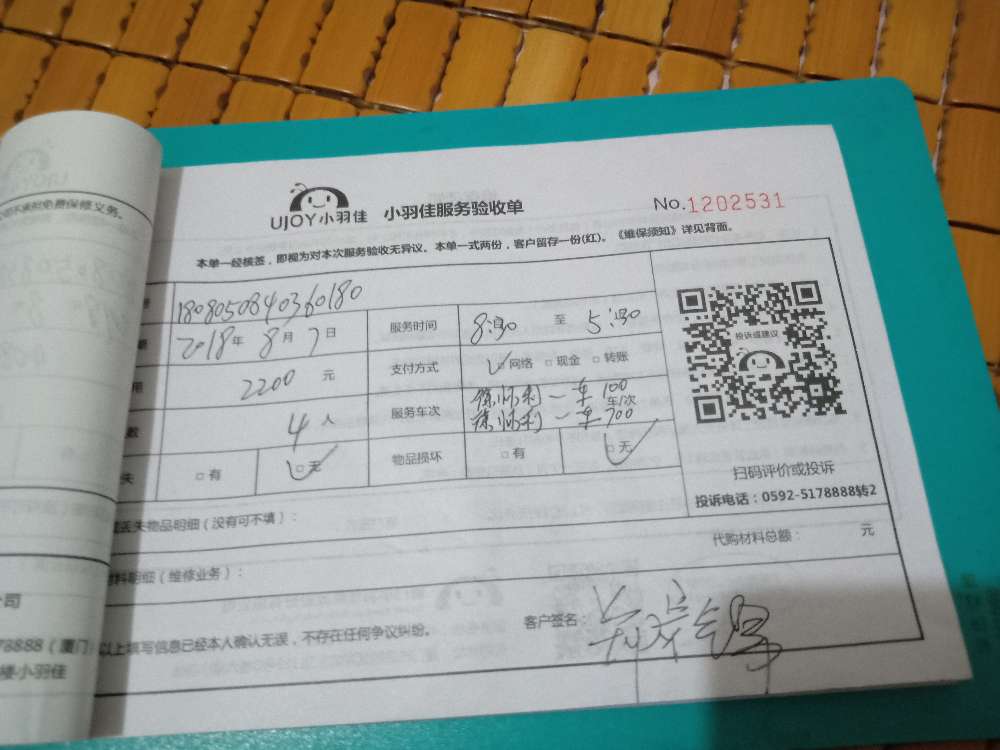 UJOY小羽佳 小羽佳服务验收单 No.1202531
本单一经核签，即视为对本次服务验收无异议。本单一式两份，客户留存一份(红)。《维保须知》详见背面。
免费保修义务。
1808050840360180
2018年 8月 7日 服务时间 8:30 至 5:30
2200 元 支付方式 网络 现金 转账
4 人 服务车次 一车100
车/次
一车700
失 有 无 物品损坏 有 无
投诉或建议
扫码评价或投诉
投诉电话：0592-5178888转2
丢失物品明细（没有可不填）：
代购材料总额： 元
料明细（维修业务）：
公司
78888（厦门）
楼小羽佳
以上填写信息已经本人确认无误，不存在任何争议纠纷。 客户签名：